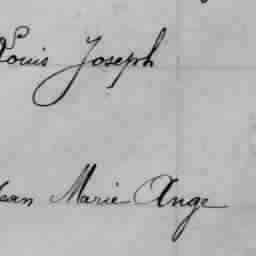 Louis Joseph
Jean Marie Ange